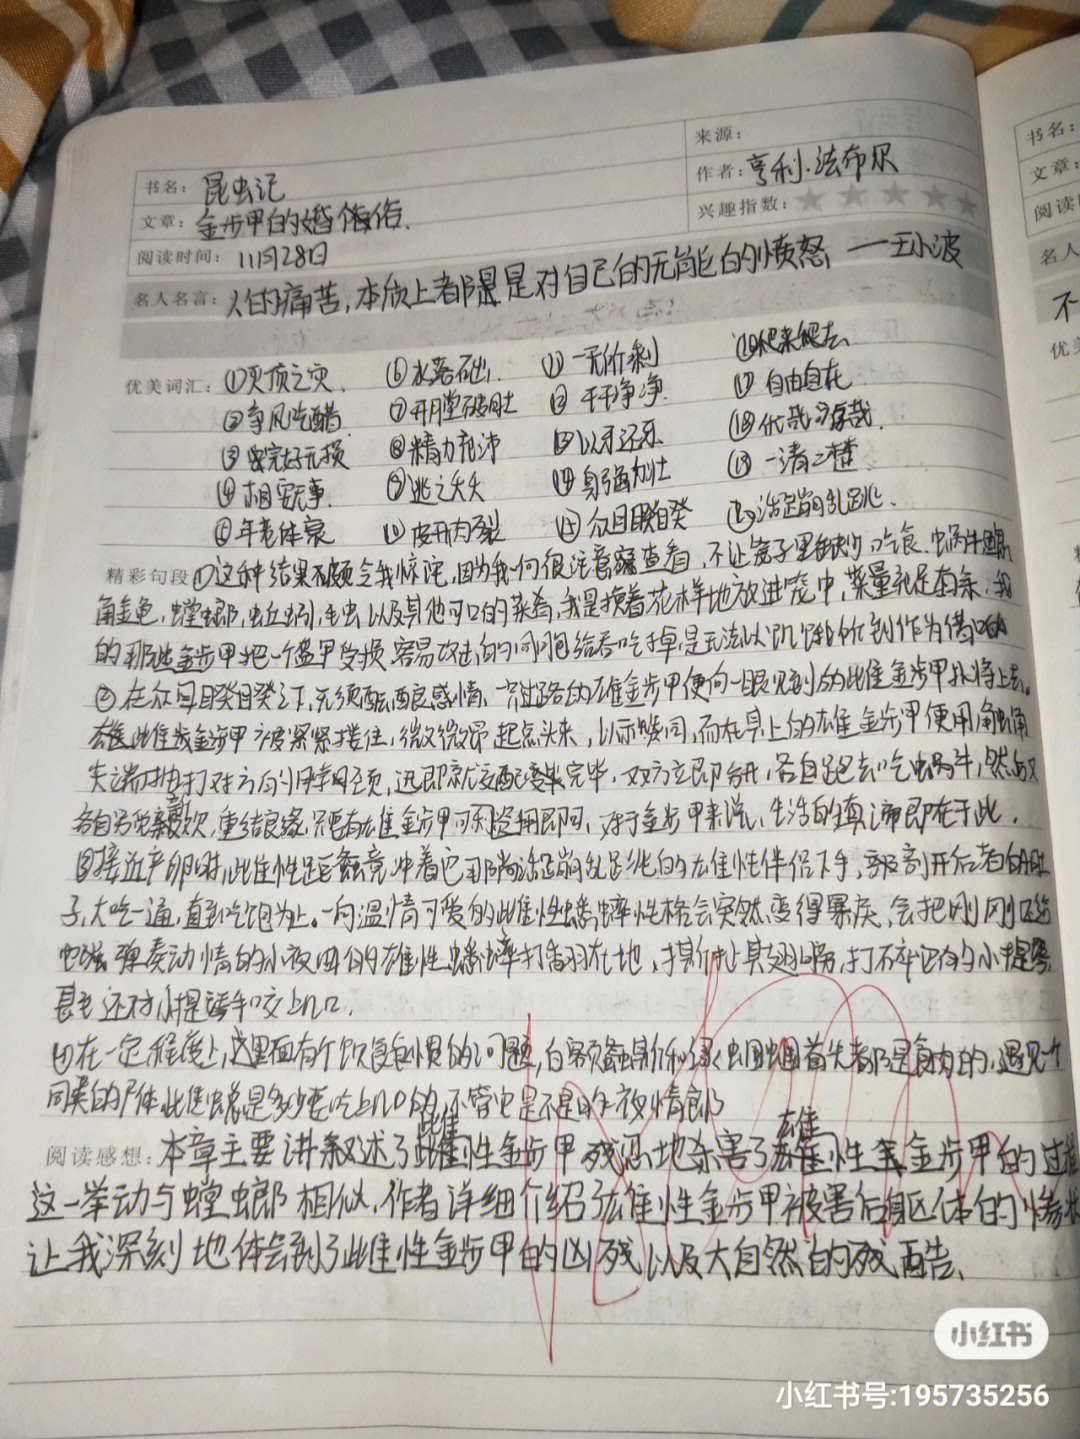 来源:
书名: 昆虫记
作者: 亨利·法布尔
文章: 金步甲的婚俗.
兴趣指数:
阅读时间: 11月28日
名人名言: 人的痛苦,本质上都是对自己的无能的愤怒 ——王小波
优美词汇: ①灭顶之灾. ⑥水落石出, ⑪一无所剩 ⑯爬来爬去.
②争风吃醋 ⑦开膛破肚 ⑫干干净净. ⑰自由自在
③完好无损 ⑧精力充沛 ⑬以牙还牙 ⑱优哉游哉.
④相安无事. ⑨逃之夭夭 ⑭身强力壮 ⑲一清二楚
⑤年老体衰 ⑩皮开肉裂 ⑮众目睽睽 ⑳活蹦乱跳.
精彩句段 ①这种结果颇令我惊诧,因为我们很注意查看,不让笼子里缺少吃食.蜗牛
鳃角金龟,螳螂,蚯蚓,毛虫以及其他可口的菜肴,我是换着花样地放进笼中,菜量绰绰有余,我
的那些金步甲把一个盔甲受损容易攻击的同胞给吞吃掉是无法以饥饿所到作为借口的
②在众目睽睽之下,无须酝酿感情,一对过路的雄金步甲便向一眼见到的雌金步甲扑将上去。
雌金步甲被紧紧搂住,微微昂起点头来,以示赞同,而在其上的雄金步甲便用触角
尖端抽打对方的脖颈,迅即就交配完毕,双方立即分开,各自跑去吃蜗牛,然后又
各自另觅新欢,重结良缘,只要有雄金步甲可利用即可,对于金步甲来说,生活的真谛即在于此.
③接近产卵时,雌性距螽竟冲着它那尚活蹦乱跳的雄性伴侣下手,剖开后者的肚
子,大吃一通,直到吃饱为止。一向温情可爱的雌性蟋蟀性格会突然变得暴戾,会把刚刚还给
她弹奏动情的小夜曲的雄性蟋蟀打翻在地,撕扯其翅膀,打碎它的小提琴,
甚至还对小提琴手咬上几口.
④在一定程度上,这里面有个饮食习惯的问题,白额螽斯和绿蝈蝈首先都是食肉的,遇见一个
同类的尸体,雌虫总是多少要吃上几口的,不管它是不是昨夜情郎
阅读感想: 本章主要讲叙述了雌性金步甲残忍地杀害了雄性金步甲的过程
这一举动与螳螂相似,作者详细介绍了雄性金步甲被害后躯体的惨状
让我深刻地体会到了雌性金步甲的凶残以及大自然的残酷.
小红书
小红书号:195735256